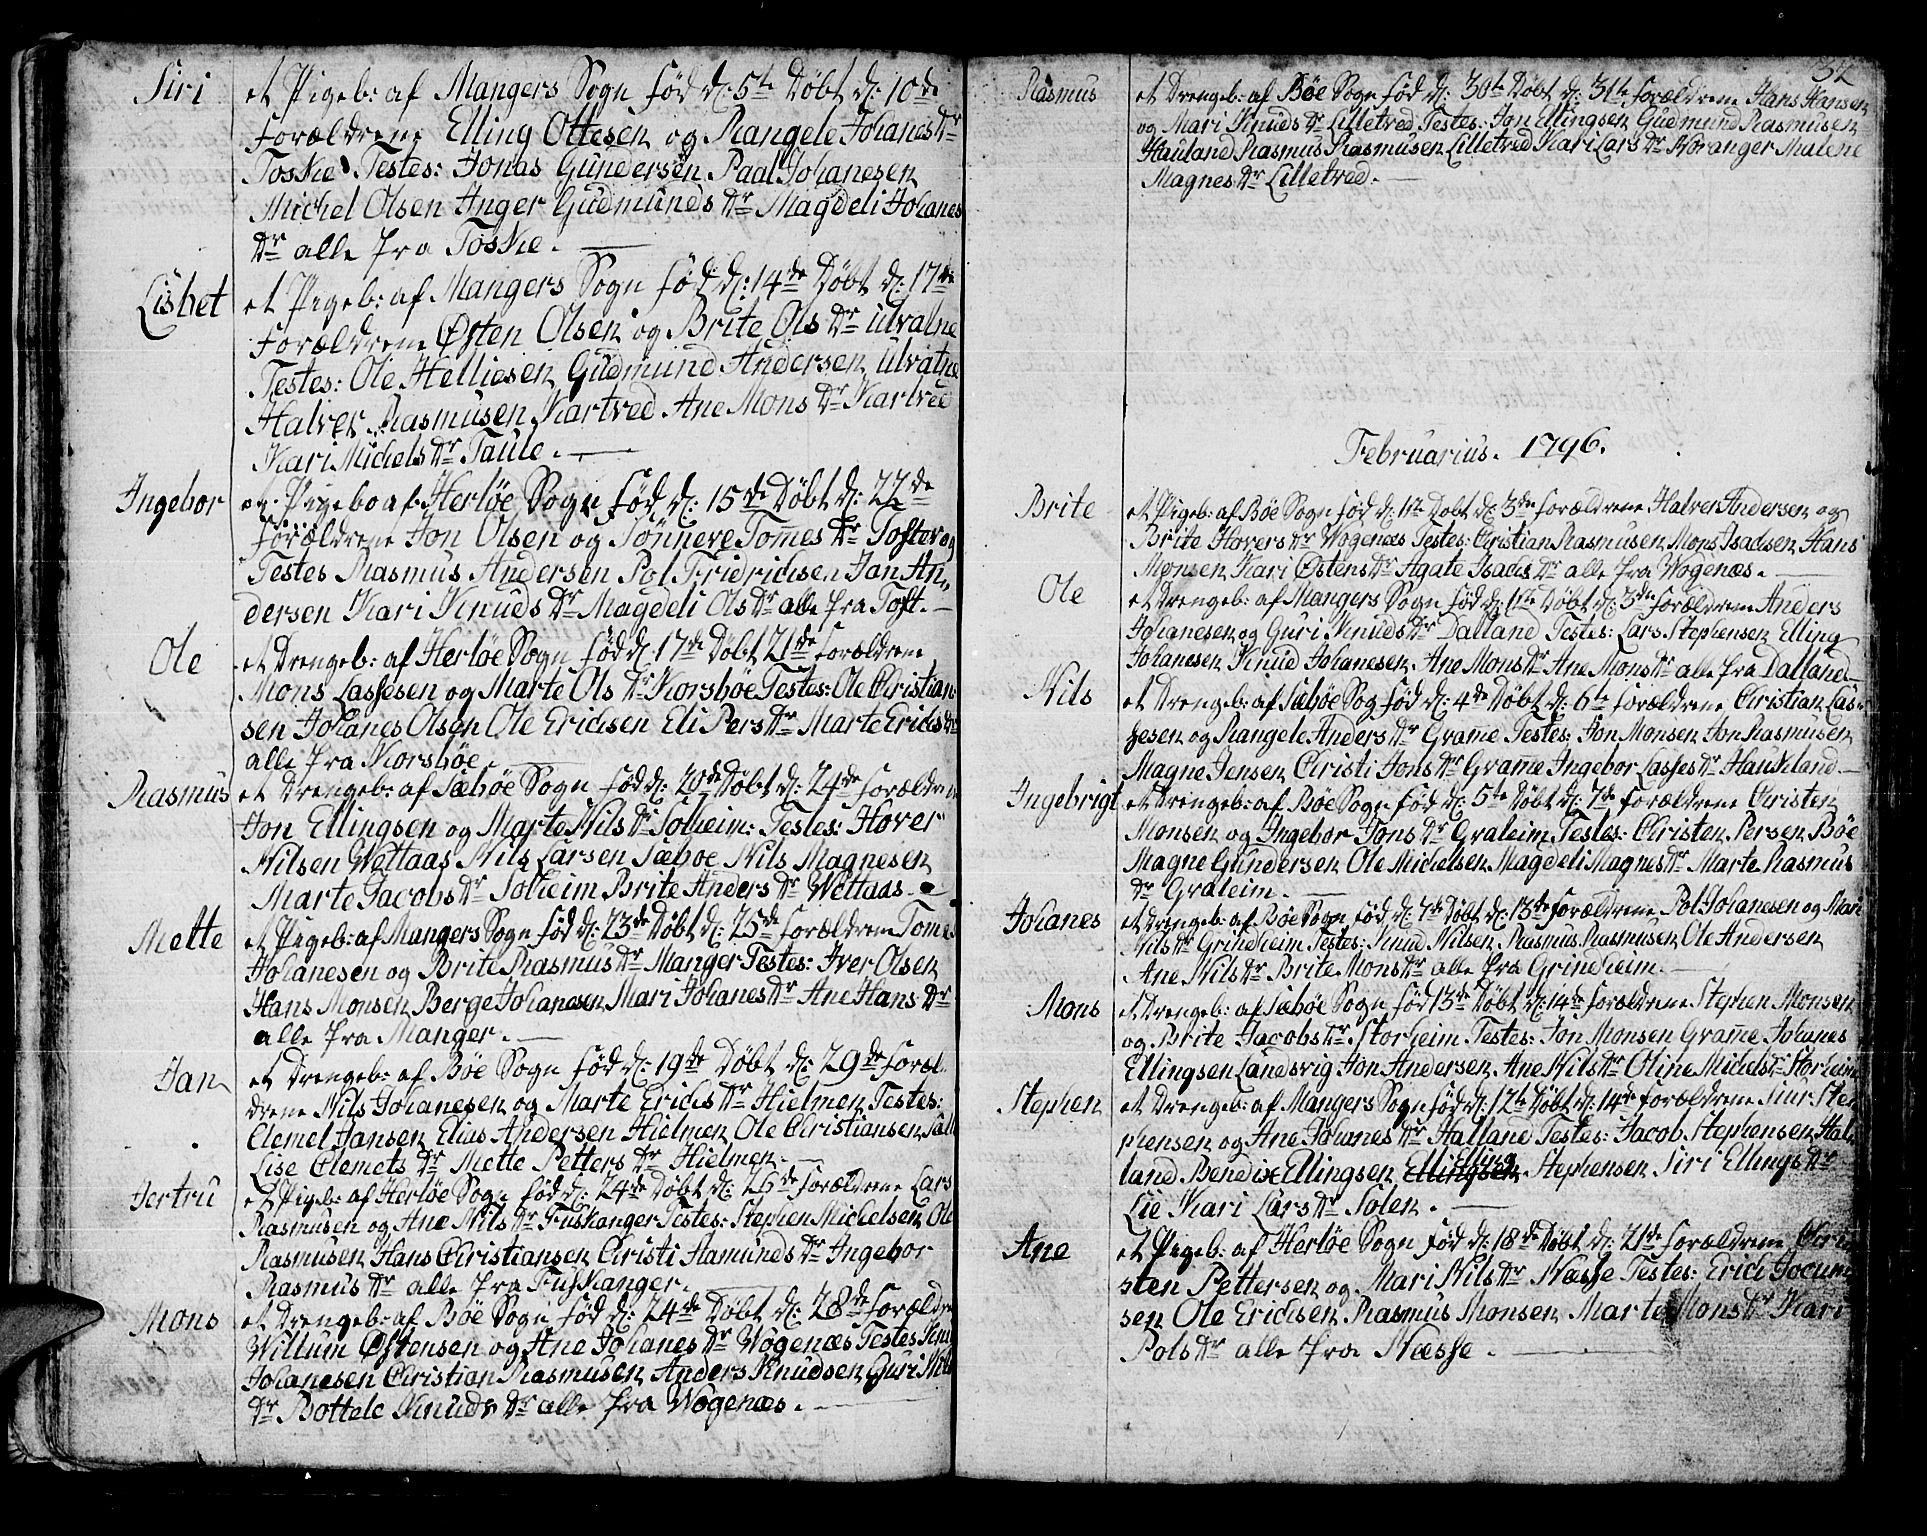 Siri et Pigeb: af Mangers Sogn fød d: 5te Døbt d: 10de
forældrene Elling Ottesen og Rangele Johanes Dr
Toske Testes: Jonas Gundersen Paal Johanesen
Michel Olsen Inger Gudmunds Dr Magdeli Johanes
Dr alle fra Toske.
Lisbet et Pigeb: af Mangers Sogn fød d: 14de Døbt d: 17de
forældrene Østen Olsen og Brite Ols Dr Ulvatne
Testes: Ole Helliesen Gudmund Andersen Ulvatne
Halver Rasmusen Kartved Ane Mons Dr Kartved
Kari Michels Dr Taule.
Ingebor et Pigeb af Herløe Sogn fød d: 15de Døbt d: 22de
forældrene Jon Olsen og Sønneve Tomes Dr Toft
Testes Rasmus Andersen Pol Fridrichsen Jan An-
dersen Kari Knuds Dr Magdeli Ols Dr alle fra Toft.
Ole et Drengeb: af Herløe Sogn fød d: 17de Døbt 21de forældrene
Mons Lassesen og Marte Ols Dr Korsbøe Testes: Ole Christian-
sen Johanes Olsen Ole Ericksen Eli Pers Dr Marte Ericks Dr
alle fra Korsbøe.
Rasmus et Drengeb: af Sæbøe Sogn fød d: 20de Døbt d: 24de forældrene
Jon Ellingsen og Marte Nils Dr Solheim: Testes: Hover
Nilsen Wettaas Nils Larsen Sæboe Nils Magnesen
Marte Jacobs Dr Solheim Brite Anders Dr Wettaas.
Mette et Pigeb: af Mangers Sogn fød d: 23de Døbt d: 25de forældrene Tomes
Johanesen og Brite Rasmus Dr Manger Testes: Iver Olsen
Hans Monsen Berge Johanesen Mari Johanes Dr Ane Hans Dr
alle fra Manger.
Jan et Drengeb: af Bøe Sogn fød d: 19de Døbt d: 29de foræl-
drene Nils Johanesen og Marte Ericks Dr Hielmen Testes:
Clemet Jansen Elias Andersen Hielmen Ole Christiansen
Lise Clemets Dr Mette Petters Dr Hielmen.
Jertru et Pigeb: af Herløe Sogn fød d: 24de Døbt d: 26de forældrene Lars
Rasmusen og Ane Nils Dr Fuskanger Testes: Stephen Michelsen Ole
Rasmusen Hans Christiansen Christi Hamunds Dr Ingebor
Rasmus Dr alle fra Fuskanger.
Mons et Drengeb: af Bøe Sogn fød d: 24de Døbt d: 28de forældre
Willum Østensen og Ane Johanes Dr Wogenæs Testes
Johanesen Christian Rasmusen Anders Knudsen Guri Nils
Dr Bottele Knuds Dr alle fra Wogenæs.
Rasmus et Drengeb: af Bøe Sogn fød d: 30te Døbt d: 31te forældrene Hans Hansen
og Mari Knuds Dr Lilletved Testes: Jon Ellingsen Gudmund Rasmusen
Hauland Rasmus Rasmusen Lilletved Kari Lars Dr Noranger Malene
Magnes Dr Lilletved.
Februarius. 1796.
Brite et Pigeb: af Bøe Sogn fød d: 1te Døbt d: 3de forældrene Halver Andersen og
Brite Hovers Dr Wogenæs Testes: Christian Rasmusen Mons Isachsen Hans
Monsen Kari Østens Dr Agate Isachs Dr alle fra Wogenæs.
Ole et Drengeb: af Mangers Sogn fød d: 1te Døbt d: 3de forældrene Anders
Johanesen og Guri Knuds Dr Dalland Testes: Lars Stephensen Elling
Johanesen Knud Johanesen Ane Mons Dr Ane Mons Dr alle fra Dalland
Nils et Drengeb: af Sæbøe Sog fød d: 4de Døbt d: 6te forældrene Christian Las-
sesen og Rangele Anders Dr Grame Testes: Jon Monsen Jon Rasmusen
Magne Jensen Christi Jons Dr Grame Ingebor Lasses Dr Haukland
Ingebrigt et Drengeb: af Bøe Sogn fød d: 5te Døbt d: 7de forældrene Christen
Monsen og Ingebor Jons Dr Graleim Testes: Christen Persen Bøe
Magne Gundersen Ole Michelsen Magdeli Magnes Dr Marte Rasmus
Dr Graleim.
Johanes et drengeb: af Bøe Sogn fød d: 7de Døbt d: 13de forældrene Pol Johanesen og Mari
Nils Dr Grindheim Testes: Knud Nilsen Rasmus Rasmusen Ole Andersen
Ane Nils Dr Brite Mons Dr alle fra Grindheim.
Mons et Drengeb: af Sæbøe Sogn fød 13de Døbt d: 14de forældrene Stephen Monsen
og Brite Jacobs Dr Storheim Testes: Jon Monsen Grame Johanes
Ellingsen Landsvig Jon Andersen Ane Nils Dr Oline Michels Dr Storheim
Stephen et Drengeb: af Mangers Sogn fød d: 12te Døbt d: 14de forældrene Siur Ste-
phensen og Ane Johanes Dr Halland Testes: Jacob Stephensen Hal-
land Bendix Ellingsen Ellingsen Elling Stephensen Siri Ellings Dr
Lie Kari Lars Dr Solen.
Ane et Pigeb: af Herløe Sogn fød d: 18de Døbt d: 21de forældrene Chri-
sten Pettersen og Mari Nils Dr Næsse Testes: Erick Jocum-
sen Ole Ericksen Rasmus Monsen Marte Mons Dr Kari
Pols Dr alle fra Næsse.